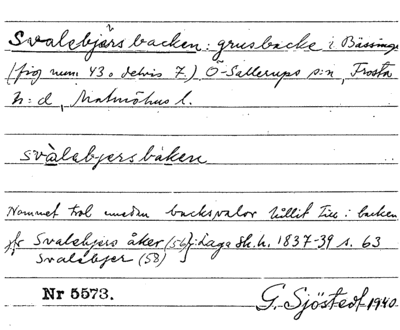 Svalebjärs backen: grusbacke i Bässinge
(fig num 43 o delvis 7.) Ö-Sallerups s:n, Frosta
h:d, Malmöhus l.
svàlebjersbàken
Nammet trol. medan backsvalor hållit till i backen
jfr Svalebjers åker (56) : Laga Sk. h. 1837-39 s. 63
Svalebjer (58)
Nr 5573.
G. Sjöstedt 1940